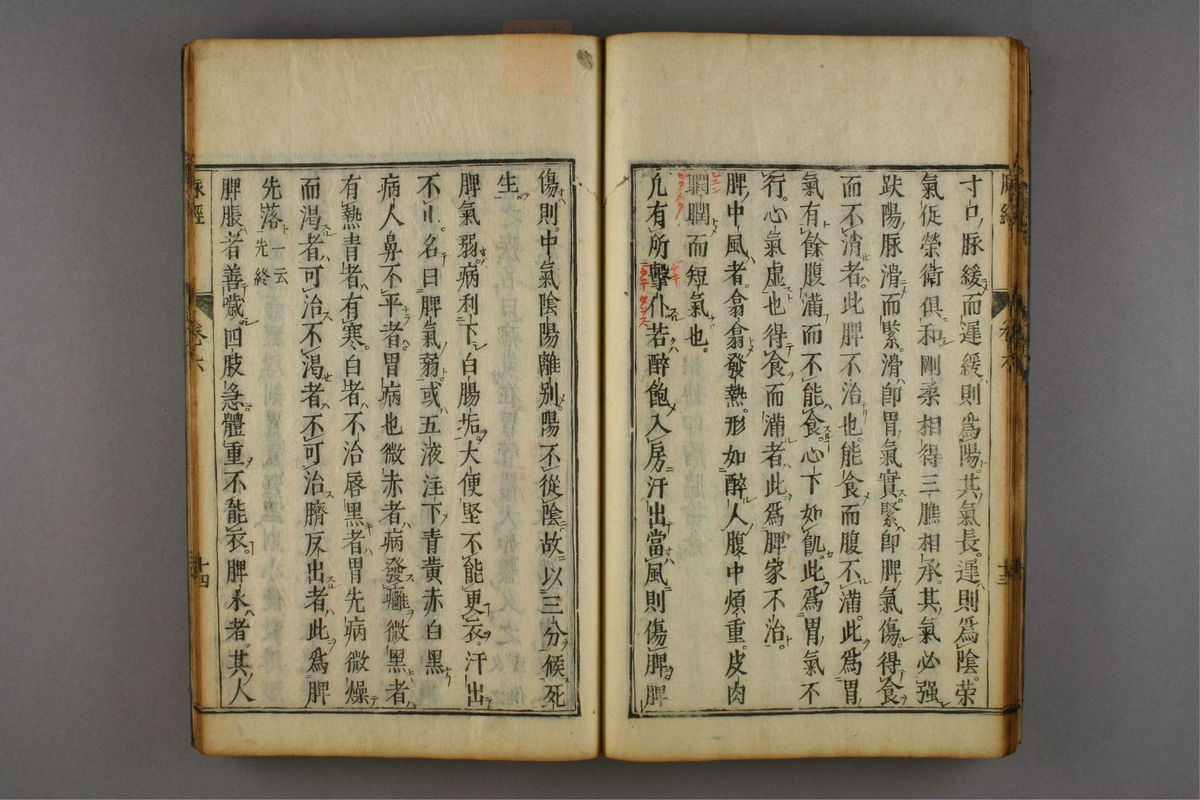 寸口脉緩而遲緩則爲陽其氣長遲則爲陰榮
氣促榮衛俱和剛柔相得三膲相承其氣必强
趺陽脉滑而緊滑卽胃氣實緊卽脾氣傷得食
而不消者此脾不治也能食而腹不滿此爲胃
氣有餘腹滿而不能食心下如飢此爲胃氣不
行心氣虛也得食而滿者此爲脾家不治
脾中風者翕翕發熱形如醉人腹中煩重皮肉
瞤瞤而短氣也
凡有所擊仆若醉飽入房汗出當風則傷脾脾
脉經
卷六
十三
傷則中氣陰陽離别陽不從陰故以三分候死
生
脾氣弱病利下白腸垢大便堅不能更衣汗出
不止名曰脾氣弱或五液注下青黄赤白黑
病人鼻下平者胃病也微赤者病發癰微黑者
有熱青者有寒白者不治唇黑者胃先病微燥
而渴者可治不渴者不可治臍反出者此爲脾
先落一云先終
脾脹者善噦四肢急體重不能衣脾水者其人
脉經
卷六
十四